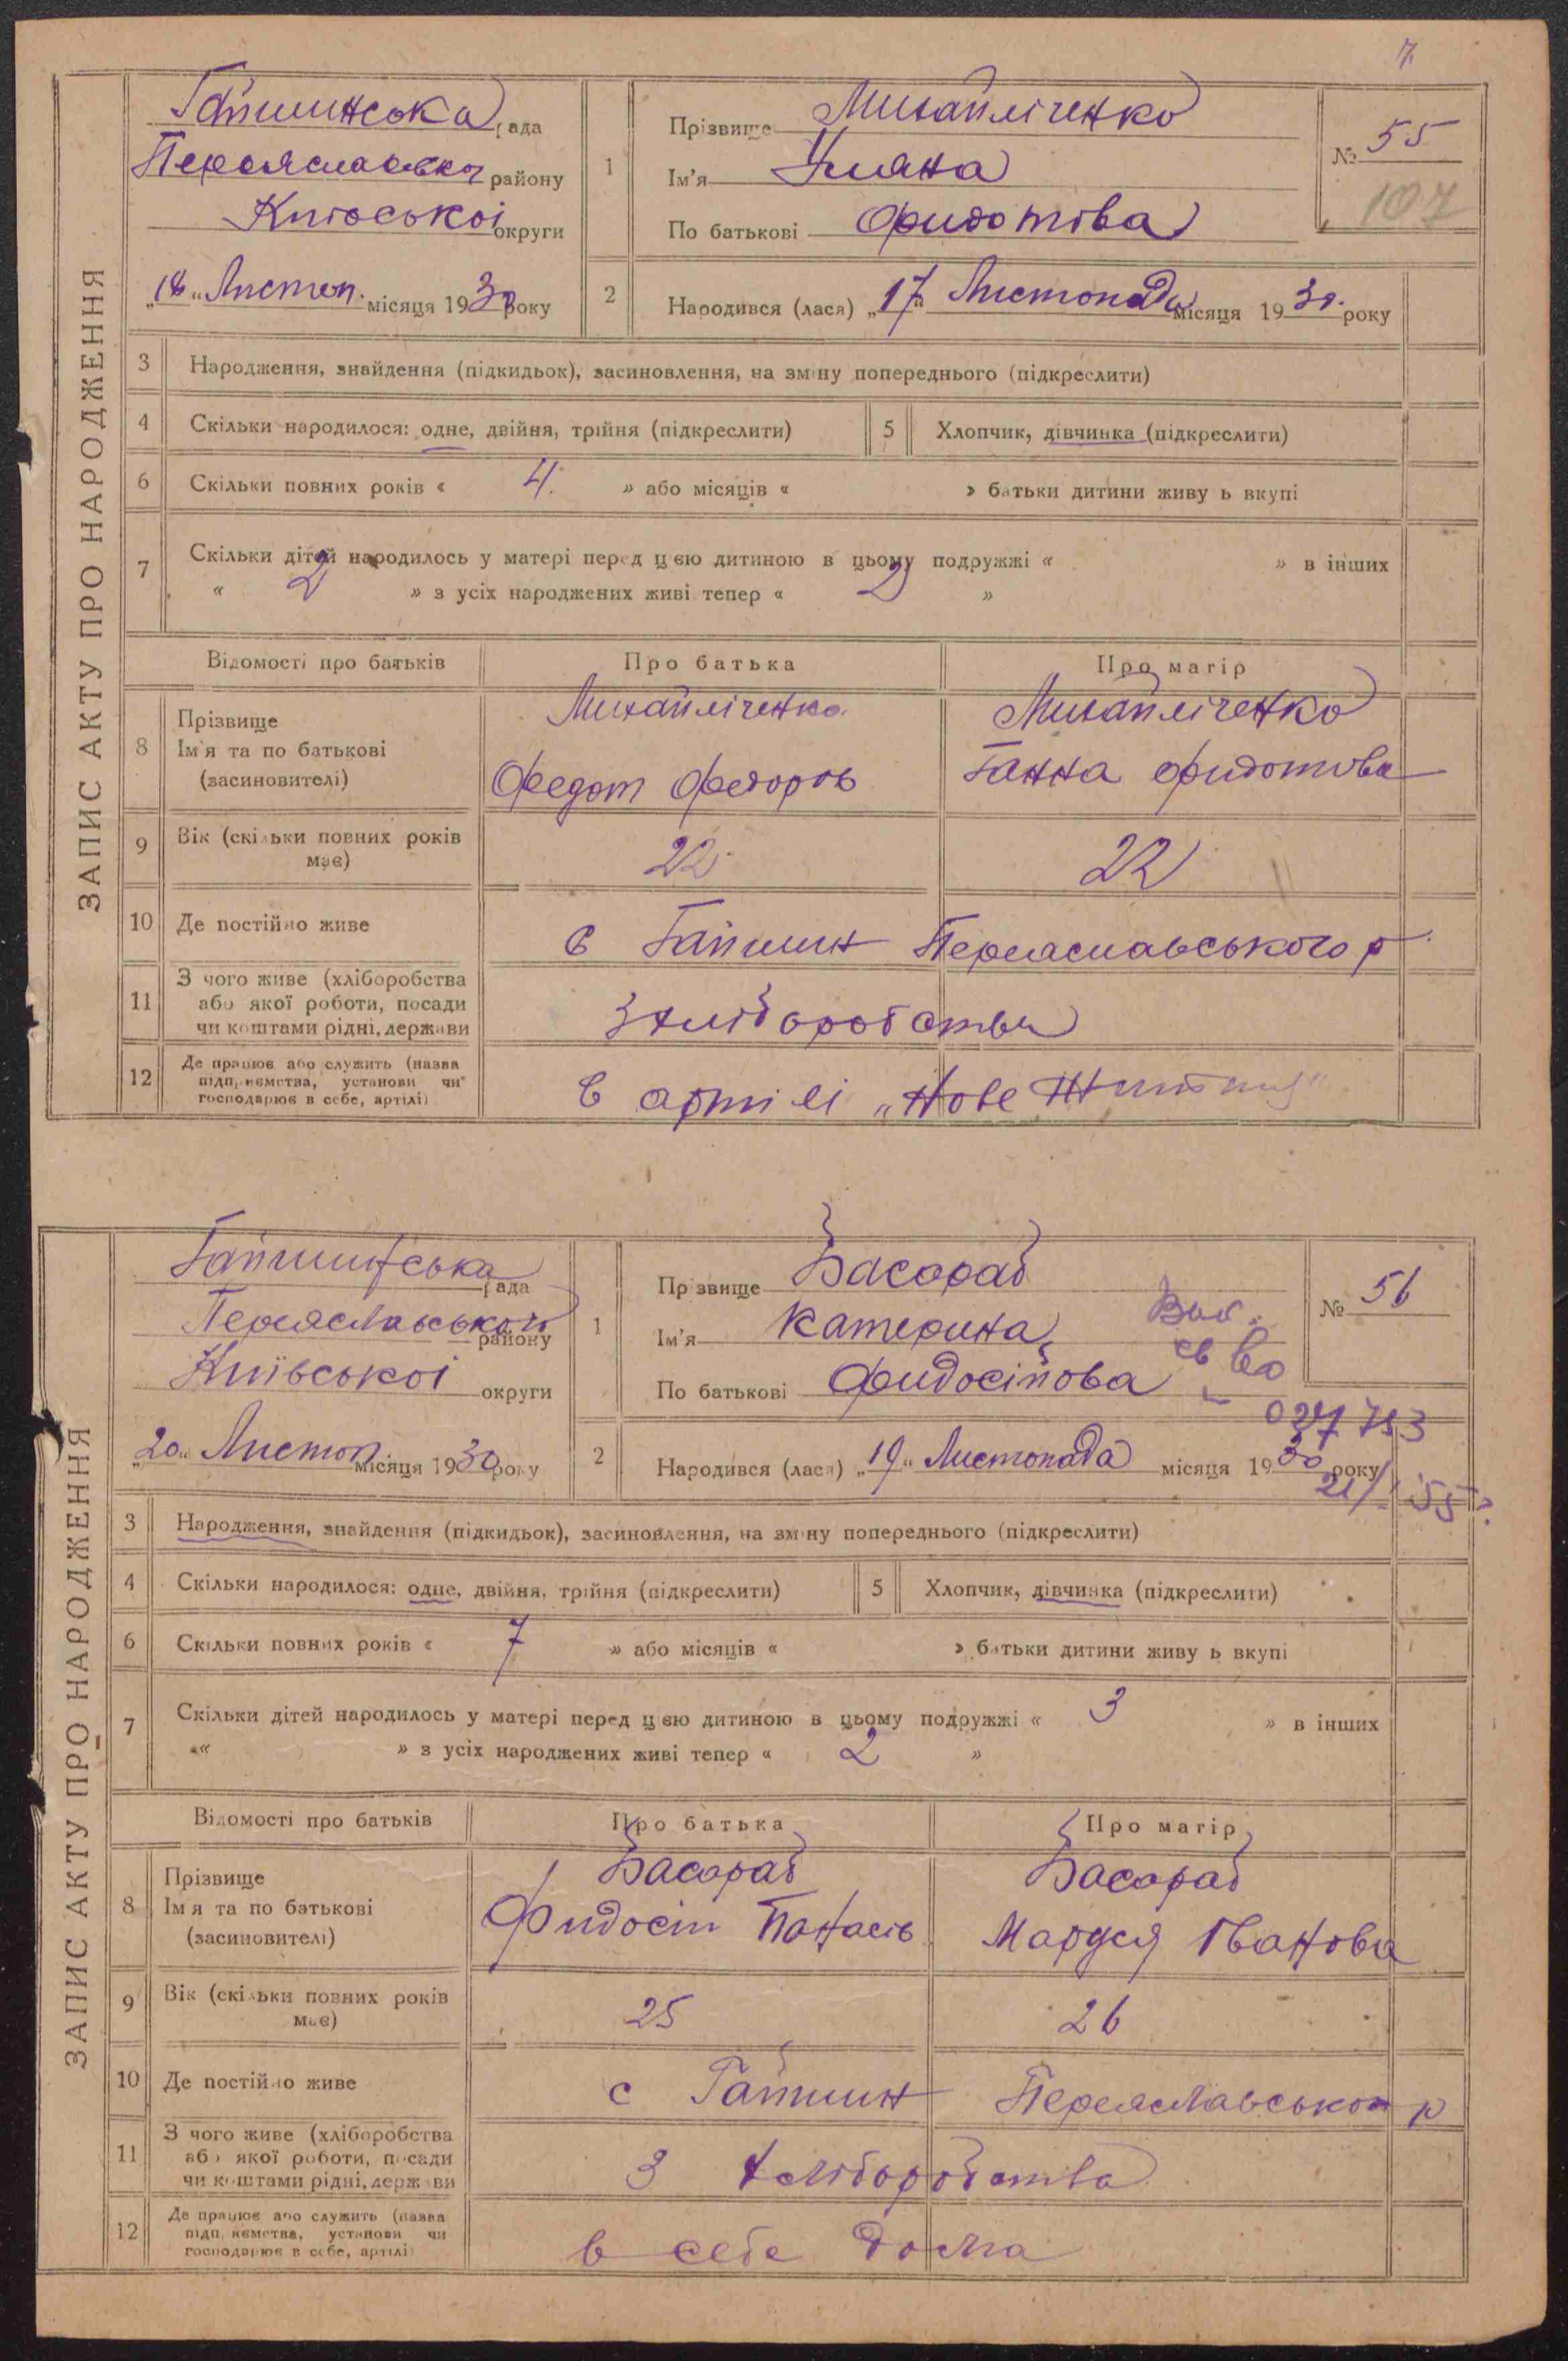 ЗАПИС АКТУ ПРО НАРОДЖЕННЯ
Гайшинська рада
Переяславськ району
Київської округи
„18“ Листоп. місяця 1930 року
1
Прізвище Михайліченко
Ім'я Уляна
По батькові Фидотова
№ 55
107
2
Народився (лася) „17“ Листопада місяця 1930. року
3 Народження, знайдення (підкидьок), засиновлення, на зміну попереднього (підкреслити)
4 Скільки народилося: одне, двійня, трійня (підкреслити) 5 Хлопчик, дівчинка (підкреслити)
6 Скільки повних років « 4. » або місяців « » батьки дитини живу ь вкупі
7 Скільки дітей народилось у матері перед цею дитиною в цьому подружжі « » в інших
« 2 » з усіх народжених живі тепер « 2 »
Відомості про батьків Про батька Про матір
8 Прізвище Михайліченко Михайліченко
Ім'я та по батькові Федот Федоров Ганна Фидотова
(засиновителі)
9 Вік (скільки повних років має) 22 22
10 Де постійно живе в Гайшин Переяславського р
11 З чого живе (хліборобства
або якої роботи, посади
чи коштами рідні, держави
З хліборобства
12 Де працює або служить (назва
підприємства, установи чи
господарює в себе, артілі)
в артілі „Нове Життия“
ЗАПИС АКТУ ПРО НАРОДЖЕННЯ
Гайшинська рада
Переяславського району
Київської округи
„20“ Листоп. місяця 1930 року
1
Прізвище Басараб
Ім'я Катерина
По батькові Фидосіпова
№ 56
св во
027793
2
Народився (лася) „19“ Листопада місяця 1930 року
3 Народження, знайдення (підкидьок), засиновлення, на зміну попереднього (підкреслити)
4 Скільки народилося: одне, двійня, трійня (підкреслити) 5 Хлопчик, дівчинка (підкреслити)
6 Скільки повних років « 7 » або місяців « » батьки дитини живу ь вкупі
7 Скільки дітей народилось у матері перед цею дитиною в цьому подружжі « 3 » в інших
« » з усіх народжених живі тепер « 2 »
Відомості про батьків Про батька Про матір
8 Прізвище Басараб Басараб
Ім'я та по батькові Фидосіп Панасів Маруся Іванова
(засиновителі)
9 Вік (скільки повних років має) 25 26
10 Де постійно живе с Гайшин Переяславського р
11 З чого живе (хліборобства
або якої роботи, посади
чи коштами рідні, держави
З хліборобства
12 Де працює або служить (назва
підприємства, установи чи
господарює в себе, артілі)
в себе дома